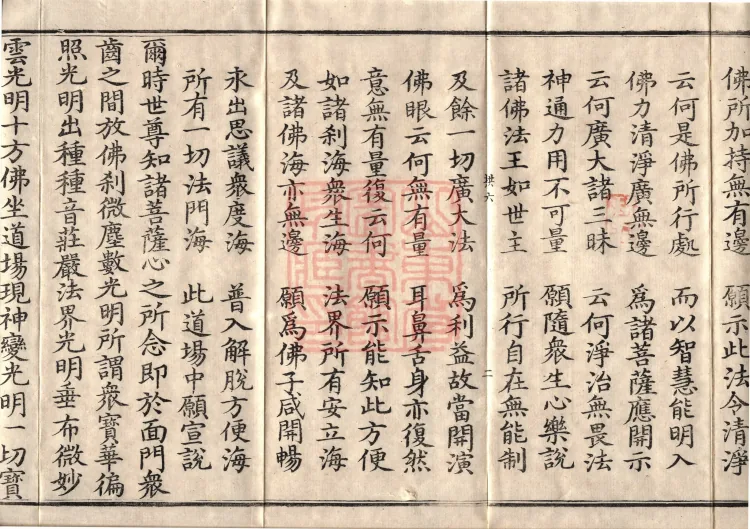 佛所加持無有邊　願示此法令清淨
云何是佛所行處　而以智慧能明入
佛力清淨廣無邊　爲諸菩薩應開示
云何廣大諸三昧　云何淨治無畏法
神通力用不可量　願隨衆生心樂說
諸佛法王如世主　所行自在無能制
拱六　二
及餘一切廣大法　爲利益故當開演
佛眼云何無有量　耳鼻舌身亦復然
意無有量復云何　願示能知此方便
如諸刹海衆生海　法界所有安立海
及諸佛海亦無邊　願爲佛子咸開暢
永出思議衆度海　普入解脫方便海
所有一切法門海　此道場中願宣說
爾時世尊知諸菩薩心之所念即於面門衆
齒之間放佛刹微塵數光明所謂衆寶華徧
照光明出種種音莊嚴法界光明垂布微妙
雲光明十方佛坐道場現神變光明一切寶